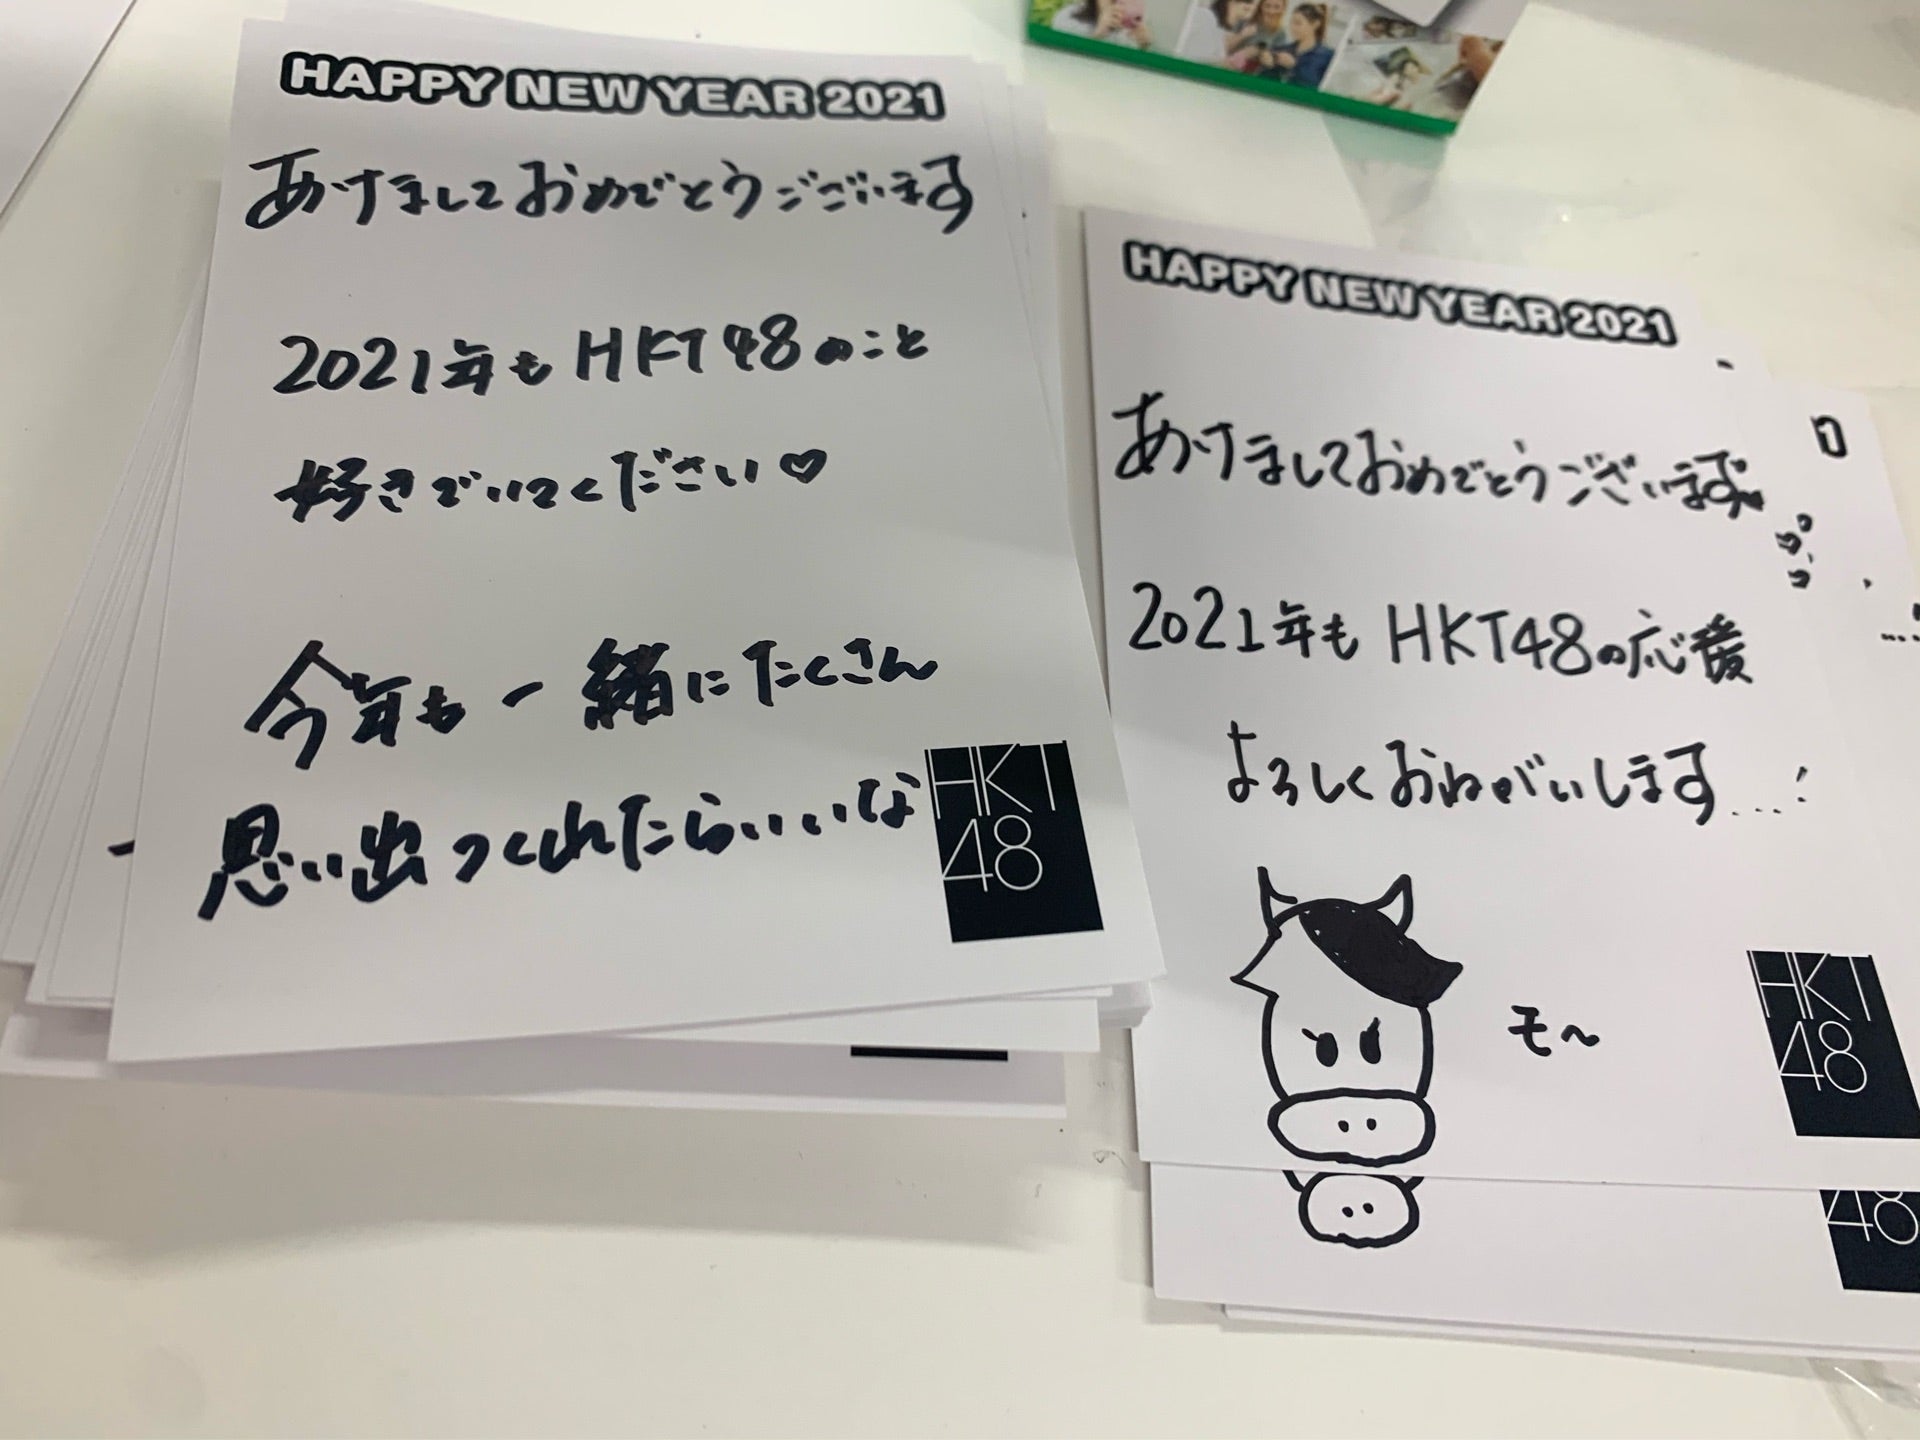 HAPPY NEW YEAR 2021
あけましておめでとうございます
2021年も HKT48のこと
好きでいてください♡
今年も一緒にたくさん
思い出つくれたらいいな
HKT
48
HAPPY NEW YEAR 2021
あけましておめでとうございます
2021年も HKT48の応援
よろしくおねがいします...!
モ〜
HKT
48
48